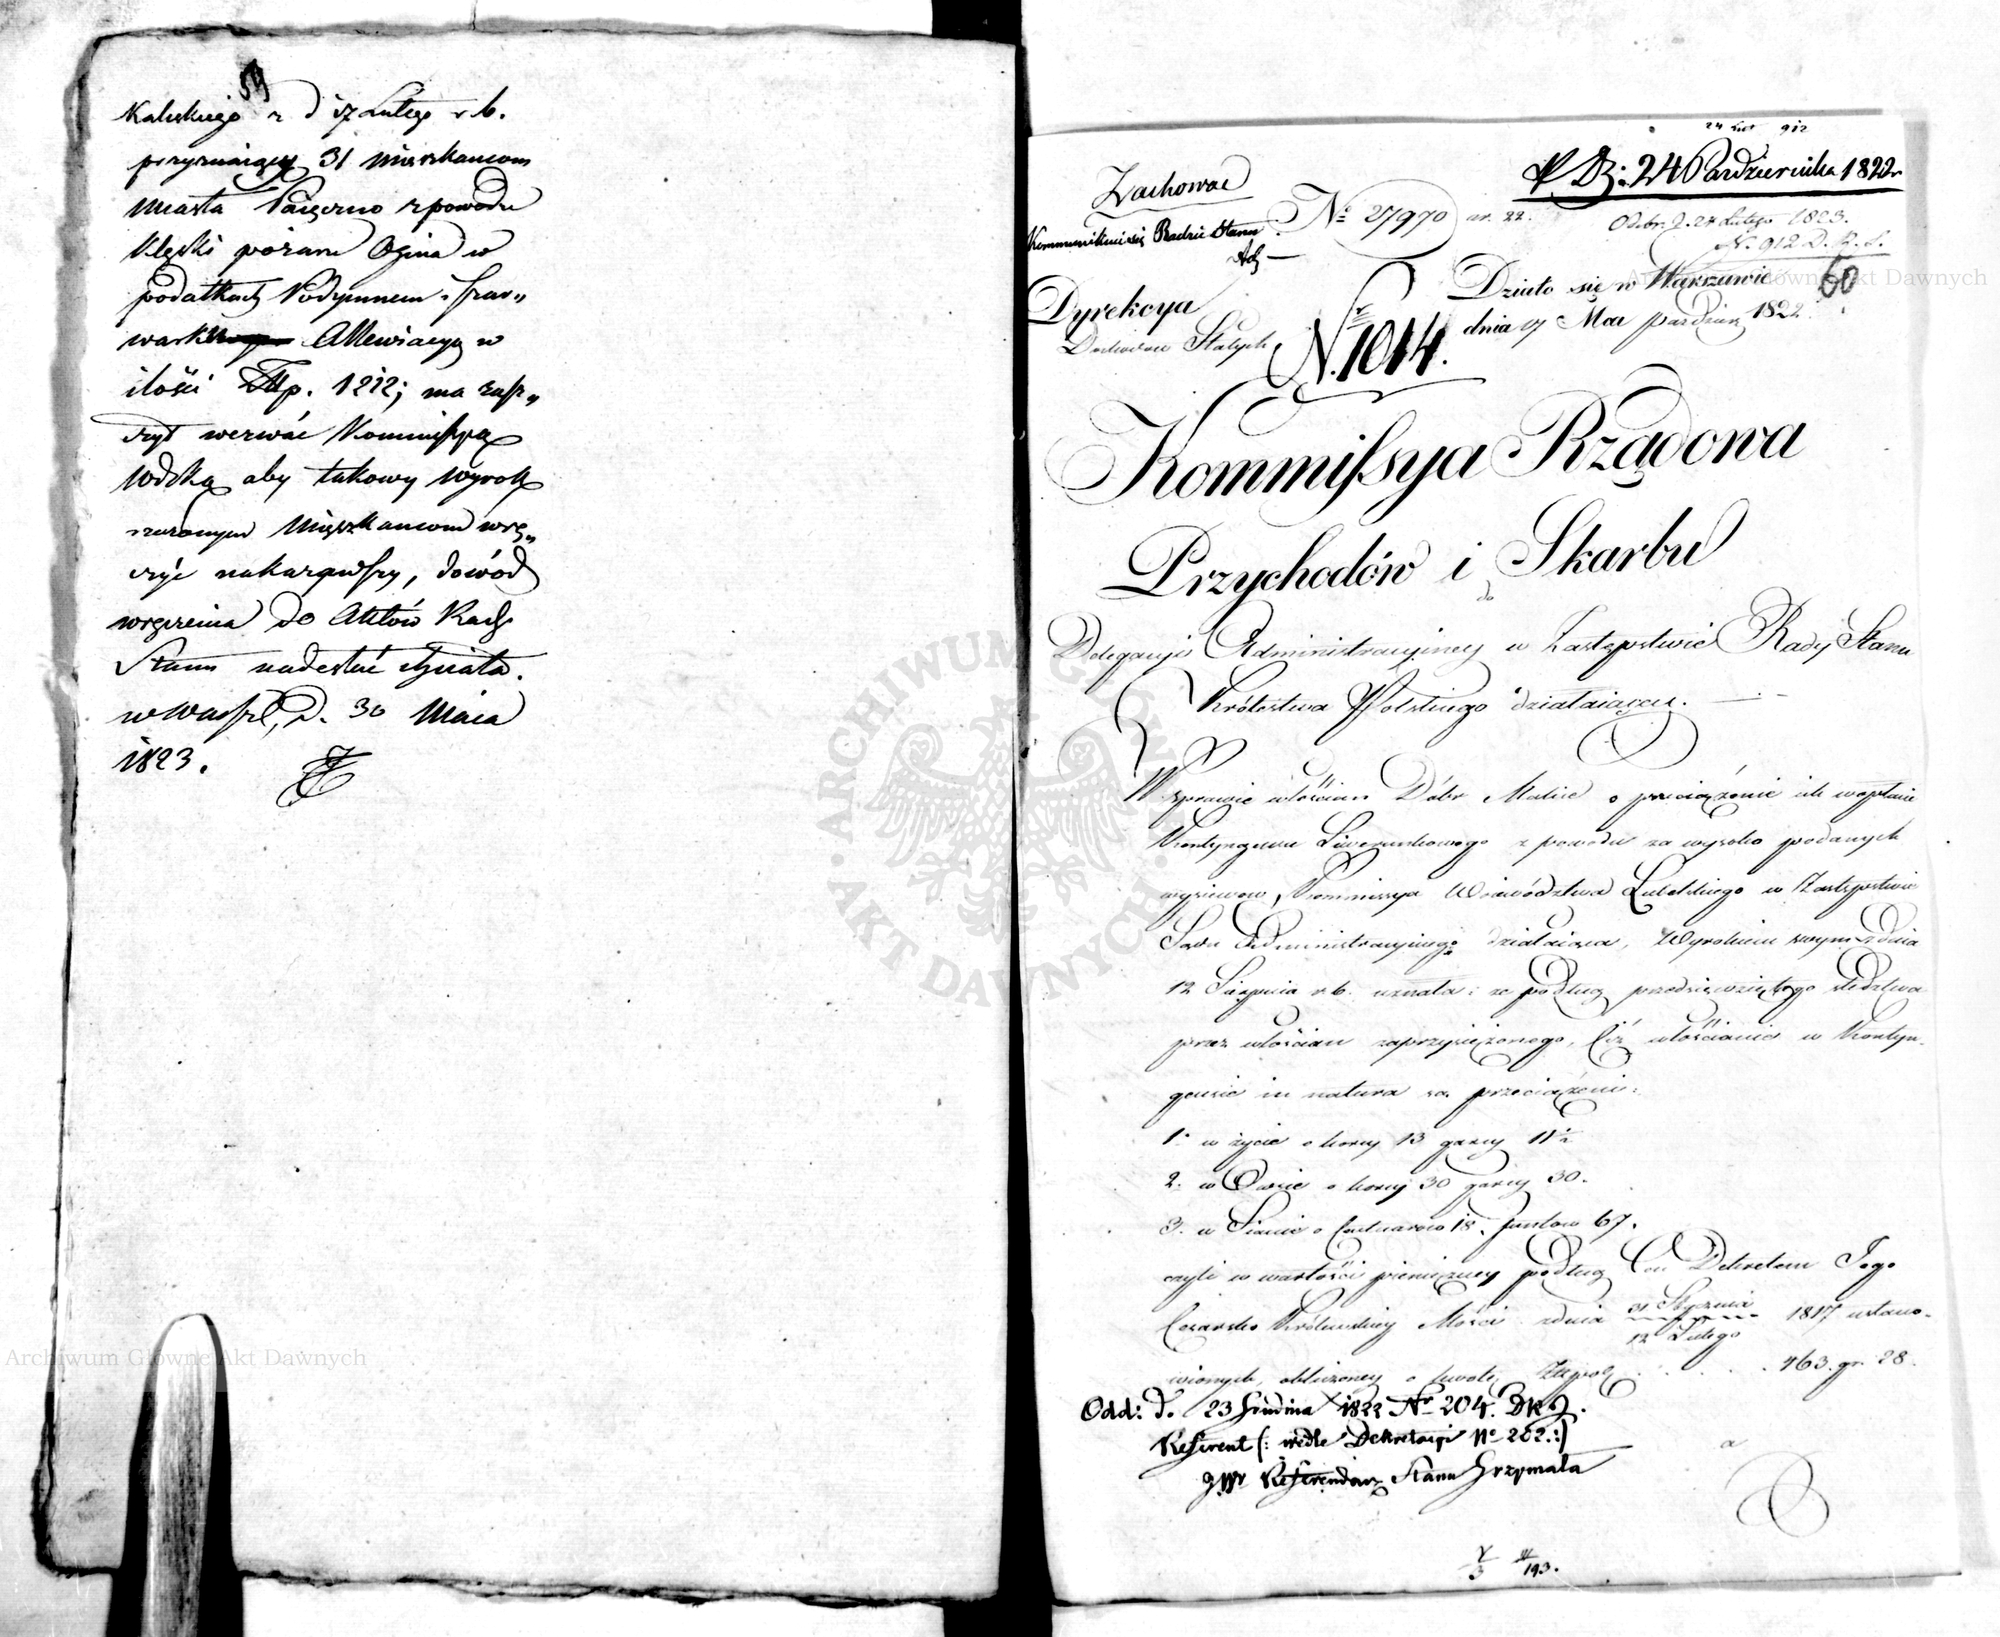 59
Kaliskiego z d 17 Lutego r b.
przyznaiący 31 mieszkancom
miasta Paięczno z powodu
klęski pożaru Ognia w
podatkach Podymnem i szar„
wark Allewiacyą w
ilości Złłp. 1212; ma zasz„
czyt wezwać Kommissyą
Wdzką aby takowy wyrok
rzeczonym Mieszkancom wrę„
czyć nakazawszy, dowód
wręczenia do Aktów Rady
Stanu nadesłać chciała.
w Warsz., d. 30 Maia
1823.
24 Lut 912
Pr. Dz: 24 Pazdziernika 1822 r
Zachować
Kommunikuie się Radzie Stanu
No 27970
Odebr. d. 24 Lutego 1823.
N. 912 D. R. S.
60
Dyrekcya
Dochodów Stałych
N. 1014.
Działo się w Warszawie
dnia 17 Mca Pazdzier 1822
Kommissya Rządowa
Przychodów i Skarbu
do
Delegacyi Administracyiney w Zastępstwie Rady Stanu
Królestwa Polskiego działaiącey.
W sprawie włościan Dóbr Malice o przeciążenie ich w opłacie
Kontyngensu Liwerunkowego z powodu za wysoko podanych
wysiewow, Kommissya Woiewództwa Lubelskiego w Zastępstwie
Sądu Administracyinego działaiąca, Wyrokiem swym z dnia
12 Sierpnia r. b. uznała: że podług przedsięwziętego śledztwa
przez włościan zaprzysiężonego, Ciż włościanie w Kontyn-
gensie in natura są przeciążeni:
1. w życie o korcy 13 garcy 11½
2. w Owsie o korcy 30 garcy 30.
3. w Sianie o Centnarow 18. funtow 67.
czyli w wartości pieniężney podług Cen Dekretem Jego
Cesarsko Królewskiey Mości z dnia 31 Stycznia / 12 Lutego 1817 ustano-
wionych, obliczoney o kwotę Złłpol . . . . 463. gr. 28.
Odd: d. 23 Grudnia 1822 No 204. DKS.
Referent (: wedle Dekretacyi No 202.:)
JW Referendarz Stanu Grzymała
a